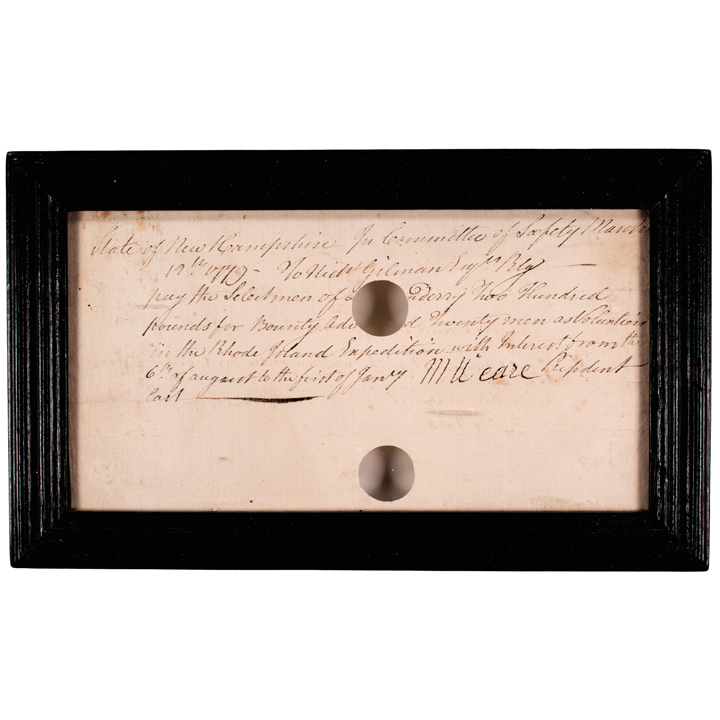 State of New Hampshire In Committee of Safety March
12th 1779 - To Nichs Gilman Esqr
pay the Selectmen of L derry Two Hundred
Pounds for Bounty Adv d Twenty men as Volunteers
in the Rhode Island Expedition with Interest from the
6th of august to the first of Jany M Weare President
last